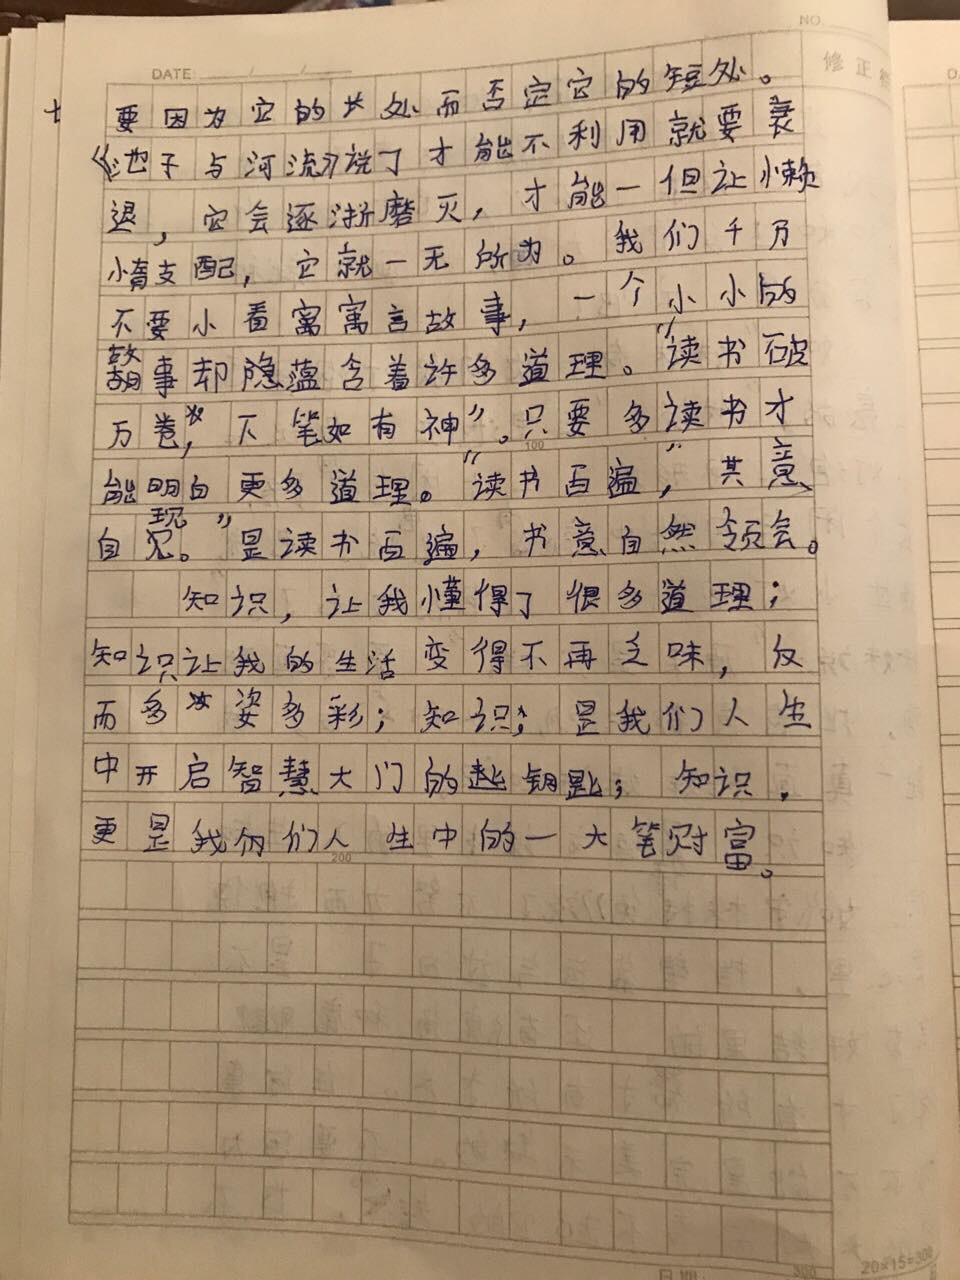 NO.
DATE
修正
要因为它的长处而否定它的短处。
《池子与河流》说了才能不利用就要衰
退，它会逐渐磨灭，才能一但让懒
惰支配，它就一无所为。我们千万
不要小看寓言故事，一个小小的
故事却隐蕴含着许多道理。“读书破
万卷，下笔如有神”。只要多读书才
100
能明白更多道理。“读书百遍”，其意
自现。”是读书百遍，书意自然领会。
知识，让我懂得了很多道理；
知识让我的生活变得不再乏味，反
而多姿多彩；知识，是我们人生
中开启智慧大门的钥匙；知识，
更是我们人生中的一大笔财富。
200
300
20×15=300